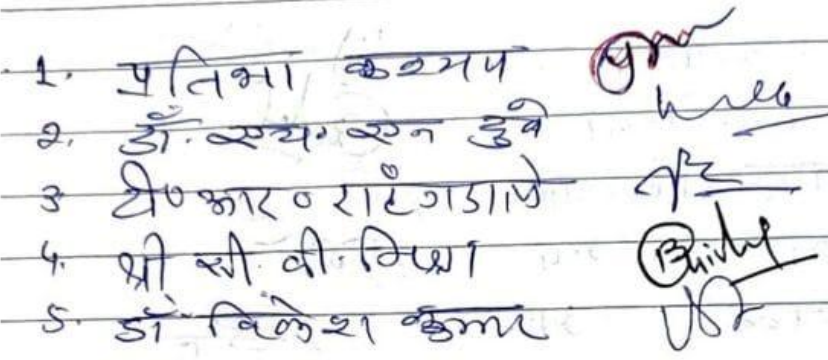 1. प्रतिभा कश्यप
2. डॉ. एच. एन दुबे
3 टी० आर० राहंगडाले
4. श्री सी. वी. मिश्रा
5. डॉ विलेश कुमार